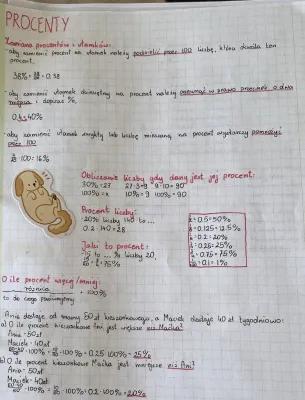 PROCENTY
Zamiana procentów i ułamków:
-aby zamienić procent na ułamek należy podzielić przez 100 liczbę, która określa ten
procent.
38% = 38/100 = 0.38
-aby zamienić ułamek dziesiętny na procent należy przesunąć w prawo przecinek o dwa
miejsca i dopisać %.
0.4 = 40%
-aby zamienić ułamek zwykły lub liczbę mieszaną na procent wystarczy pomnożyć
przez 100
· 100 = 16%
Obliczanie liczby gdy dany jest jej procent:
30% = 27 27:3=9 9·10=90
100% = x 10% = 9 100% = 90
Procent liczby:
20% liczby 140 to ...
0.2 · 140 = 28
Jaki to procent:
15 to ... % liczby 20,
= 75%
= 0.5 = 50%
= 0.125 = 12.5%
= 0.2 = 20%
= 0.25 = 25%
= 0.75 = 75%
= 0.1 = 1%
O ile procent więcej/mniej:
różnica
· 100%
to do czego porównujemy
Ania dostaje od mamy 50zł kieszonkowego, a Maciek dostaje 40zł tygodniowo:
a) O ile procent kieszonkowe Ani jest większe niż Maćka?
Ania = 50zł
Maciek = 40zł
· 100% = 10/40 · 100% = 0.25 · 100% = 25%
b) O ile procent kieszonkowe Maćka jest mniejsze niż Ani?
Ania = 50zł
Maciek = 40zł
· 100% = 10/50 · 100% = 0.2 · 100% = 20%